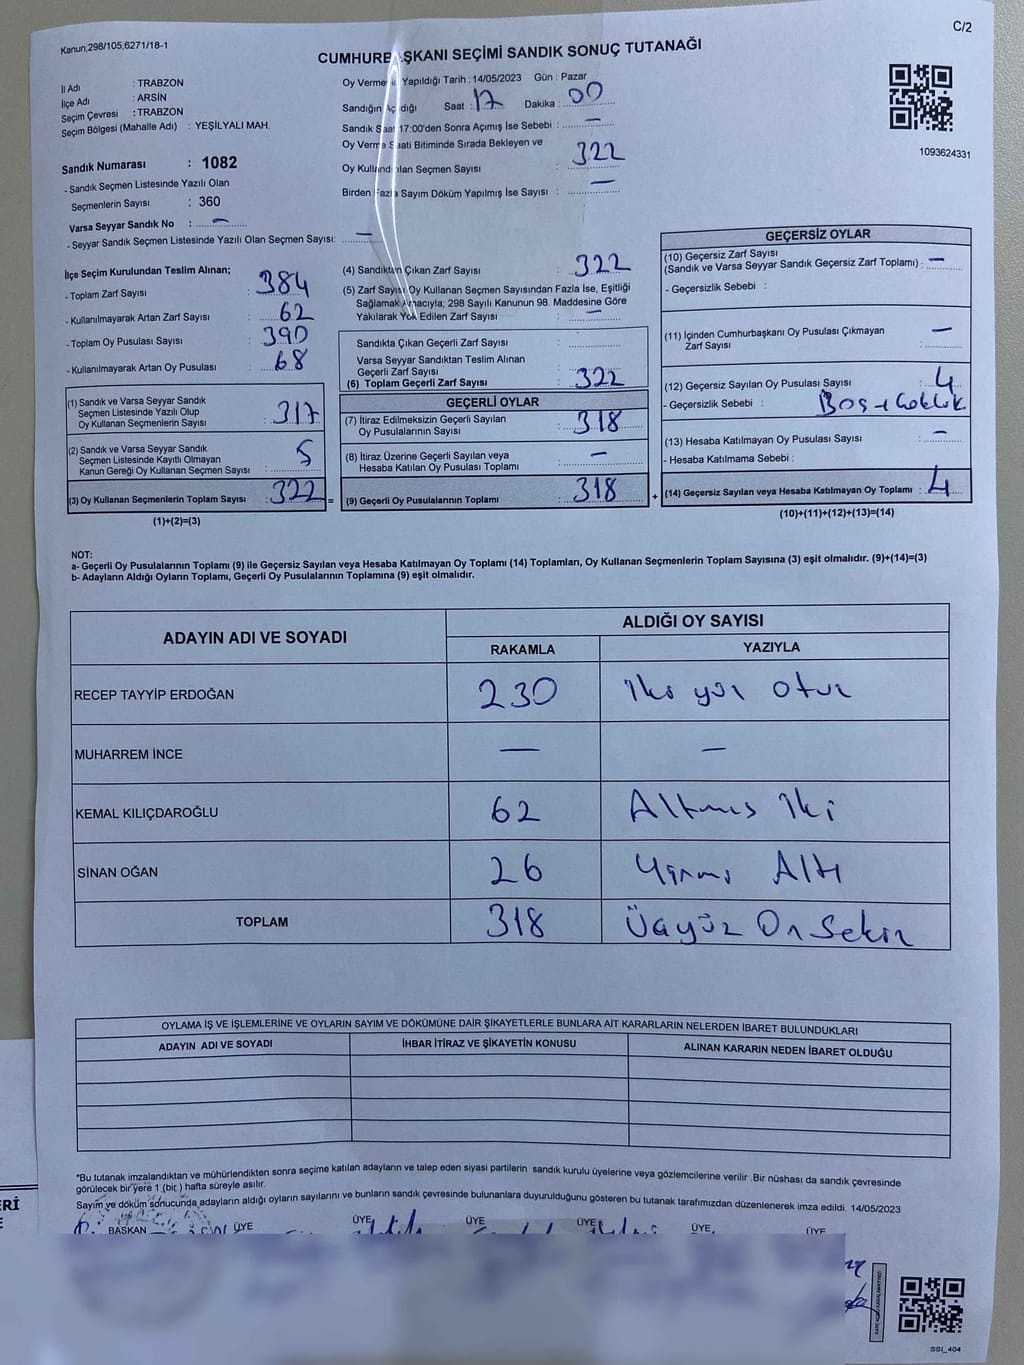 Kanun;298/105;6271/18-1
C/2
CUMHURBAŞKANI SEÇİMİ SANDIK SONUÇ TUTANAĞI
İl Adı : TRABZON
İlçe Adı : ARSİN
Seçim Çevresi : TRABZON
Seçim Bölgesi (Mahalle Adı) : YEŞİLYALI MAH.
Oy Vermenin Yapıldığı Tarih : 14/05/2023 Gün : Pazar
Sandığın Açıldığı Saat : 17 Dakika : 00
Sandık Saat 17:00'den Sonra Açımış İse Sebebi : —
Oy Verme Saati Bitiminde Sırada Bekleyen ve
Oy Kullandırılan Seçmen Sayısı : 322
Birden Fazla Sayım Döküm Yapılmış İse Sayısı : —
1093624331
Sandık Numarası : 1082
- Sandık Seçmen Listesinde Yazılı Olan
Seçmenlerin Sayısı : 360
Varsa Seyyar Sandık No : —
- Seyyar Sandık Seçmen Listesinde Yazılı Olan Seçmen Sayısı: —
İlçe Seçim Kurulundan Teslim Alınan;
- Toplam Zarf Sayısı : 384
- Kullanılmayarak Artan Zarf Sayısı : 62
- Toplam Oy Pusulası Sayısı : 390
- Kullanılmayarak Artan Oy Pusulası : 68
(1) Sandık ve Varsa Seyyar Sandık
Seçmen Listesinde Yazılı Olup
Oy Kullanan Seçmenlerin Sayısı : 317
(2) Sandık ve Varsa Seyyar Sandık
Seçmen Listesinde Kayıtlı Olmayan
Kanun Gereği Oy Kullanan Seçmen Sayısı : 5
(3) Oy Kullanan Seçmenlerin Toplam Sayısı : 322 =
(1)+(2)=(3)
(4) Sandıktan Çıkan Zarf Sayısı : 322
(5) Zarf Sayısı Oy Kullanan Seçmen Sayısından Fazla İse, Eşitliği
Sağlamak Amacıyla; 298 Sayılı Kanunun 98. Maddesine Göre
Yakılarak Yok Edilen Zarf Sayısı : —
Sandıkta Çıkan Geçerli Zarf Sayısı :
Varsa Seyyar Sandıktan Teslim Alınan
Geçerli Zarf Sayısı :
(6) Toplam Geçerli Zarf Sayısı : 322
GEÇERLİ OYLAR
(7) İtiraz Edilmeksizin Geçerli Sayılan
Oy Pusulalarının Sayısı : 318
(8) İtiraz Üzerine Geçerli Sayılan veya
Hesaba Katılan Oy Pusulası Toplamı : —
(9) Geçerli Oy Pusulalarının Toplamı : 318 +
GEÇERSİZ OYLAR
(10) Geçersiz Zarf Sayısı
(Sandık ve Varsa Seyyar Sandık Geçersiz Zarf Toplamı) : —
- Geçersizlik Sebebi :
(11) İçinden Cumhurbaşkanı Oy Pusulası Çıkmayan
Zarf Sayısı : —
(12) Geçersiz Sayılan Oy Pusulası Sayısı : 4
- Geçersizlik Sebebi : Boş +
(13) Hesaba Katılmayan Oy Pusulası Sayısı : —
- Hesaba Katılmama Sebebi :
(14) Geçersiz Sayılan veya Hesaba Katılmayan Oy Toplamı : 4
(10)+(11)+(12)+(13)=(14)
NOT:
a- Geçerli Oy Pusulaları Toplamı (9) ile Geçersiz Sayılan veya Hesaba Katılmayan Oy Toplamı (14) Toplamları, Oy Kullanan Seçmenlerin Toplam Sayısına (3) eşit olmalıdır. (9)+(14)=(3)
b- Adayların Aldığı Oyların Toplamı, Geçerli Oy Pusulalarının Toplamına (9) eşit olmalıdır.
ADAYIN ADI VE SOYADI ALDIĞI OY SAYISI
RAKAMLA YAZIYLA
RECEP TAYYİP ERDOĞAN 230 İki yüz otuz
MUHARREM İNCE — —
KEMAL KILIÇDAROĞLU 62 Altmış İki
SİNAN OĞAN 26 Yirmi Altı
TOPLAM 318 Üçyüz On Sekiz
OYLAMA İŞ VE İŞLEMLERİNE VE OYLARIN SAYIM VE DÖKÜMÜNE DAİR ŞİKAYETLERLE BUNLARA AİT KARARLARIN NELERDEN İBARET BULUNDUKLARI
ADAYIN ADI VE SOYADI İHBAR İTİRAZ VE ŞİKAYETİN KONUSU ALINAN KARARIN NEDEN İBARET OLDUĞU
*Bu tutanak imzalandıktan ve mühürlendikten sonra seçime katılan adayların ve talep eden siyasi partilerin sandık kurulu üyelerine veya gözlemcilerine verilir .Bir nüshası da sandık çevresinde
görülecek bir yere 1 (bir ) hafta süreyle asılır.
Sayım ve döküm sonucunda adayların aldığı oyların sayılarını ve bunların sandık çevresinde bulunanlara duyurulduğunu gösteren bu tutanak tarafımızdan düzenlenerek imza edildi. 14/05/2023
BAŞKAN ÜYE ÜYE ÜYE ÜYE ÜYE ÜYE
SSİ_404